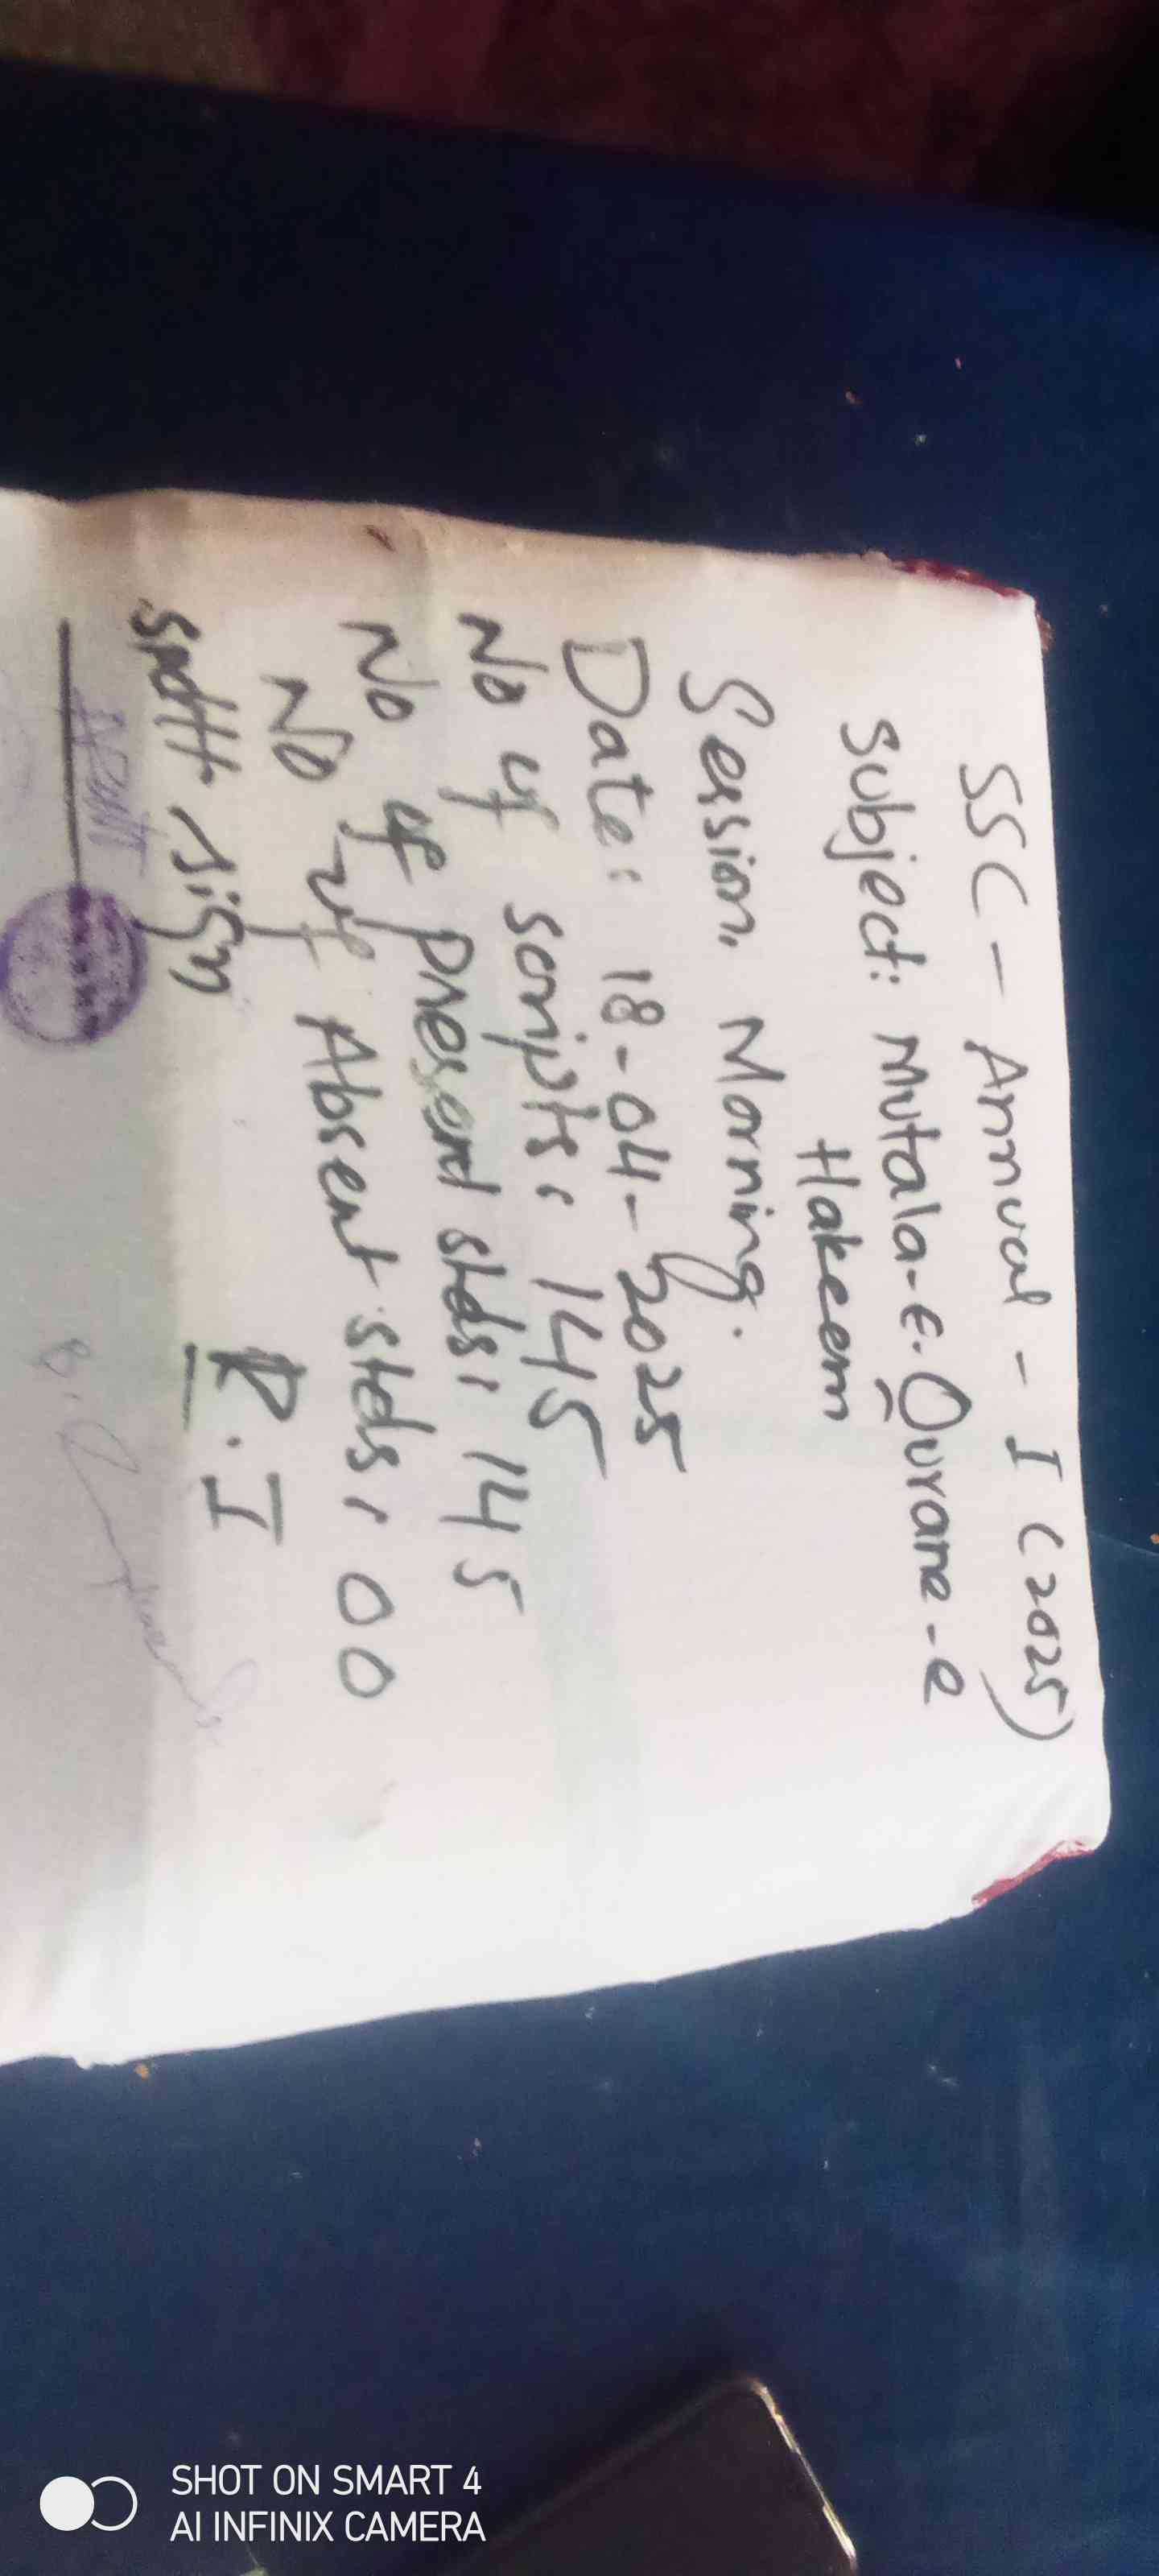 SSC - Annual - I (2025)
Subject: Mutala-e-Qurane-e
Hakeem
Session, Morning.
Date: 18-04-2025
No of scripts: 145
No of present stds: 145
No of Absent stds: 00
spdtt sign
R.I
SHOT ON SMART 4
AI INFINIX CAMERA